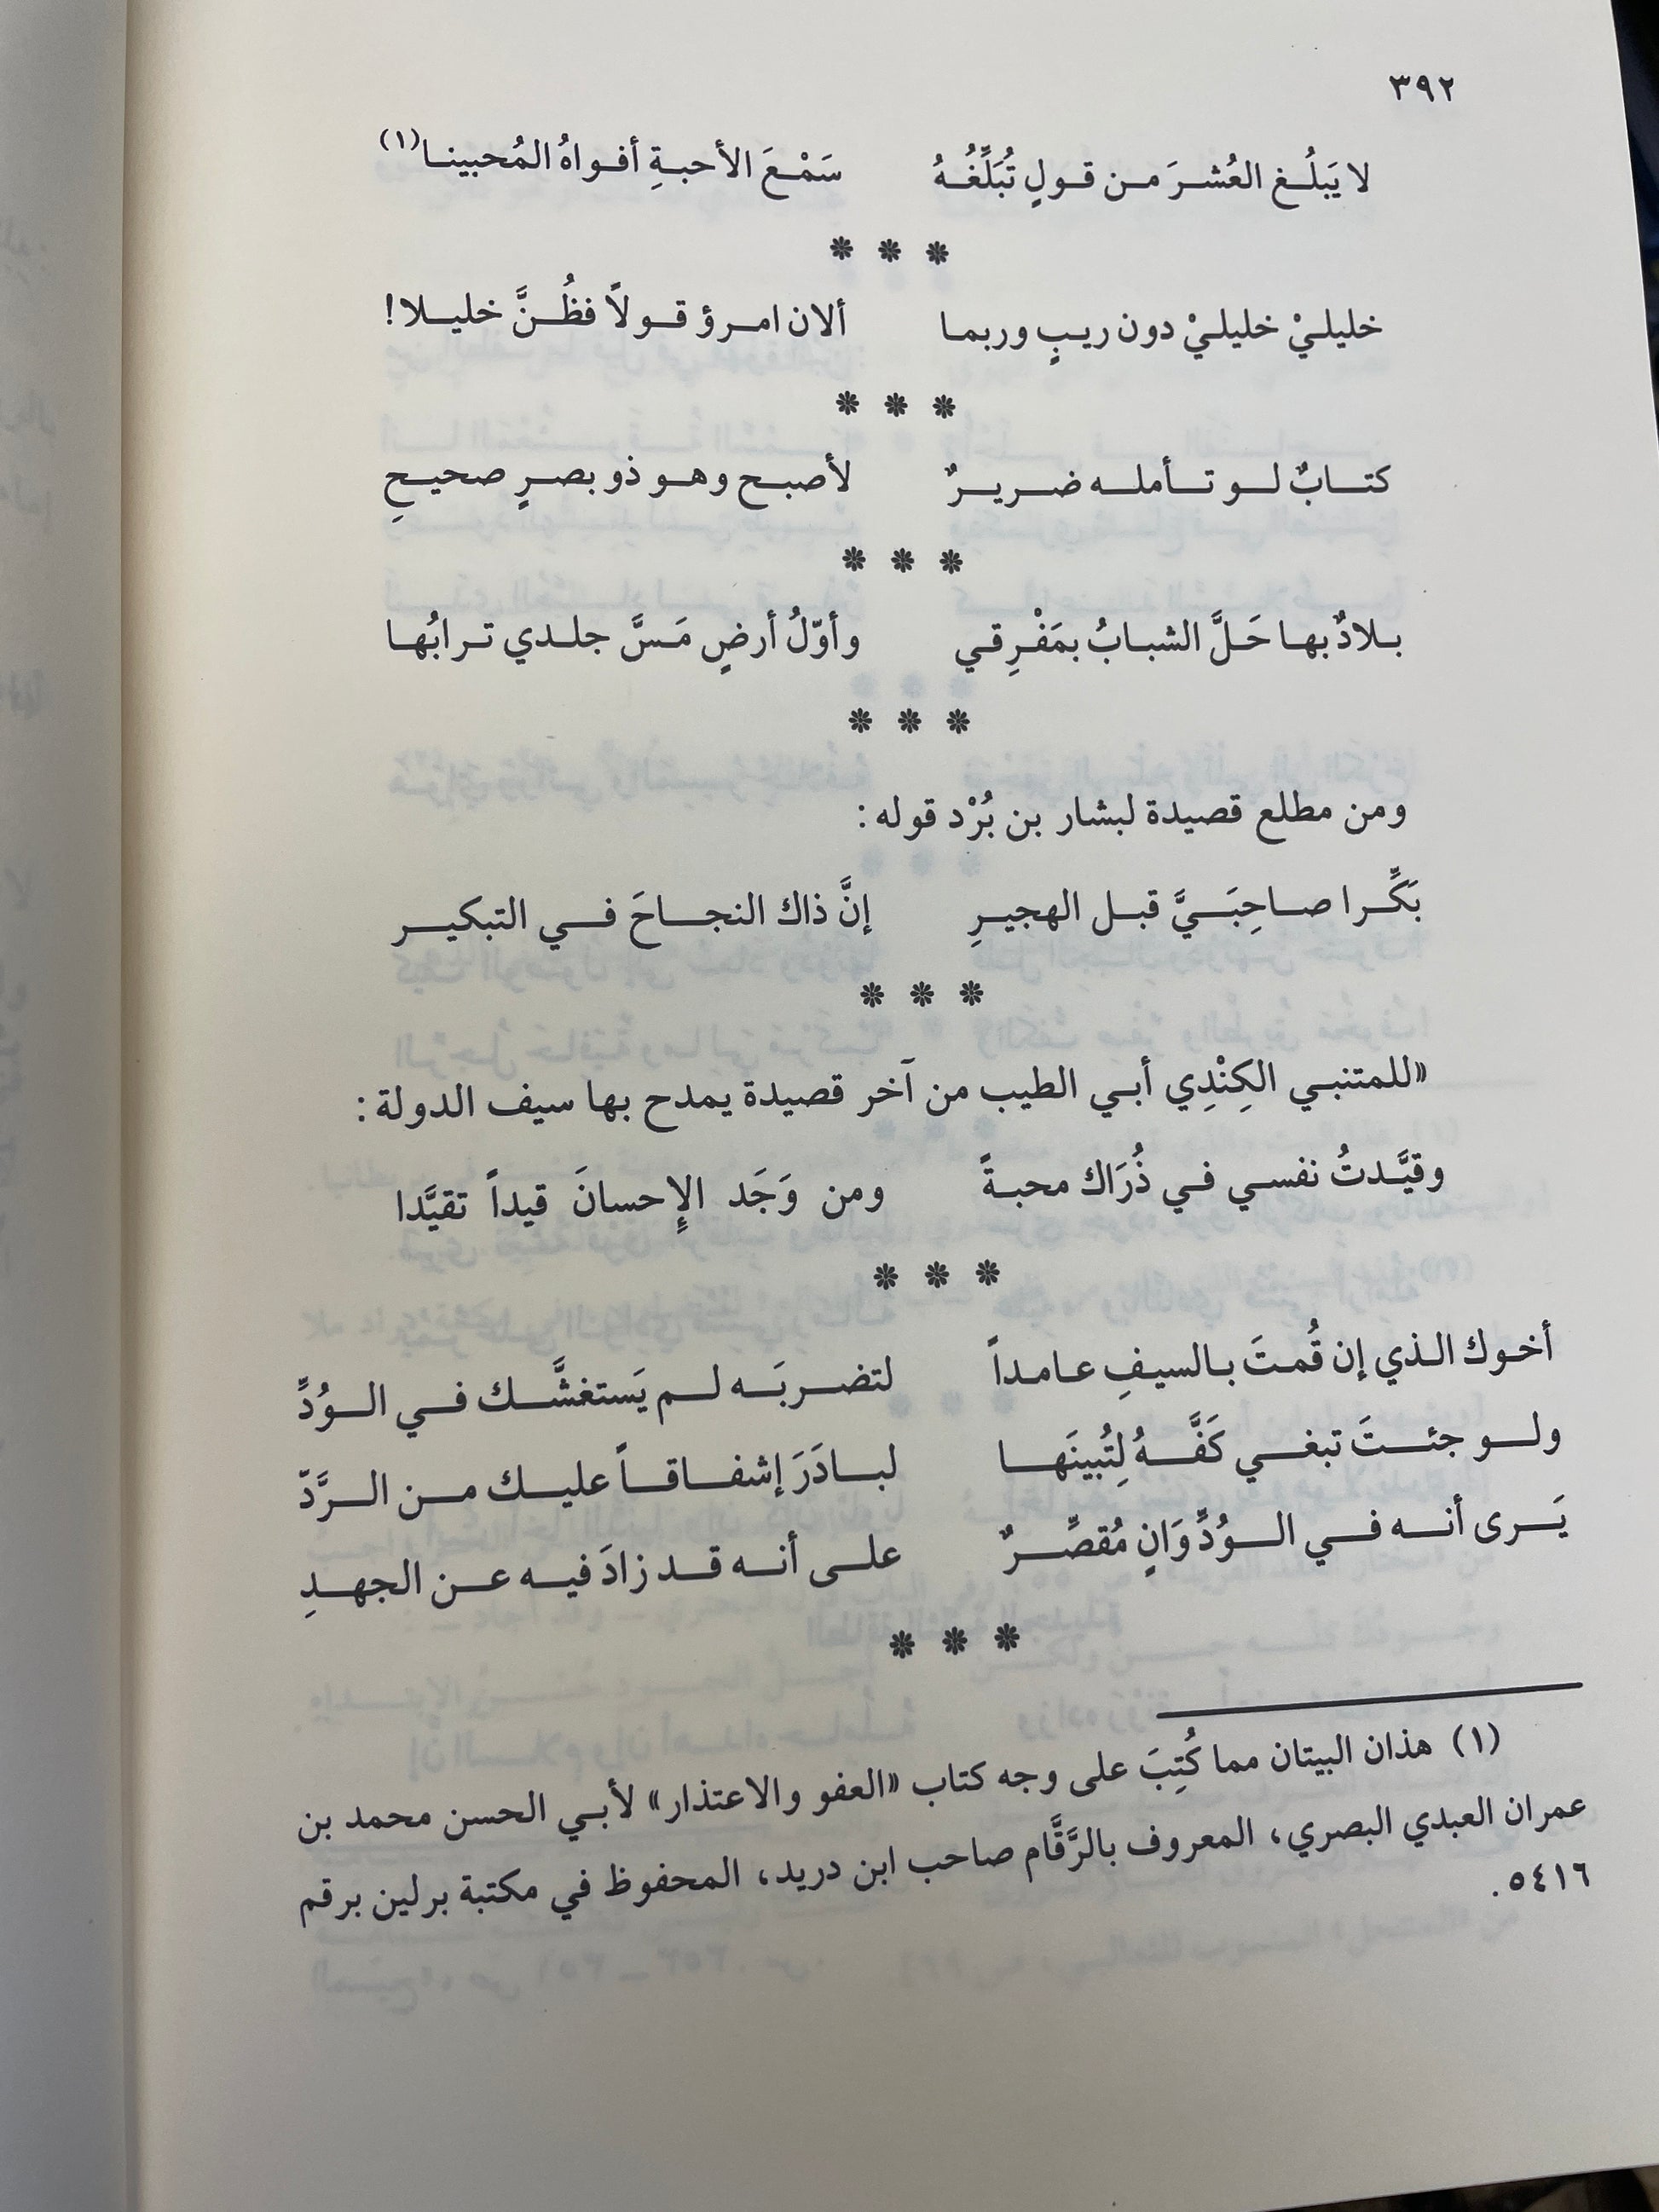 ٣٩٢
لا يَبلُـغ العُشـرَ مـن قـولٍ تُبَلِّغُـهُ سَمْـعَ الأحبـةِ أفـواهُ المُحبينـا(١)
* * *
خليلـيْ خليلـيْ دون ريـبٍ وربمـا ألان امـرؤ قـولاً فظُـنَّ خليـلا!
* * *
كتـابٌ لـو تـأملـه ضـريـرٌ لأصبـح وهـو ذو بصـرٍ صحيـحِ
* * *
بـلادٌ بهـا حَـلَّ الشبـابُ بمَفْـرِقـي وأوّلُ أرضٍ مَـسَّ جلـدي تـرابُهـا
* * *
ومن مطلع قصيدة لبشار بن بُرْد قوله:
بَكِّـرا صـاحِبَـيَّ قبـل الهجيـرِ إنَّ ذاك النجـاحَ فـي التبكيـر
* * *
«للمتنبـي الكِنْدِي أبـي الطيب من آخر قصيدة يمدح بها سيف الدولة:
وقيَّـدتُ نفسـي فـي ذُرَاك محبـةً ومن وَجَد الإِحسانَ قيداً تقيَّدا
* * *
أخـوك الـذي إن قُمـتَ بـالسيـفِ عـامـداً لتضـربَـه لـم يَستغشَّـك فـي الـوُدِّ
ولـو جئـتَ تبغـي كَفَّـهُ لِتُبينَهـا لبـادَرَ إشفـاقـاً عليـك مـن الـرَّدّ
يَـرى أنـه فـي الـوُدِّ وَانٍ مُقصِّـرٌ علـى أنـه قـد زادَ فيـه عـن الجهـدِ
* * *
(١) هذان البيتان مما كُتِبَ على وجه كتاب «العفو والاعتذار» لأبـي الحسن محمد بن
عمران العبدي البصري، المعروف بالرَّقَّام صاحب ابن دريد، المحفوظ في مكتبة برلين برقم
٥٤١٦.